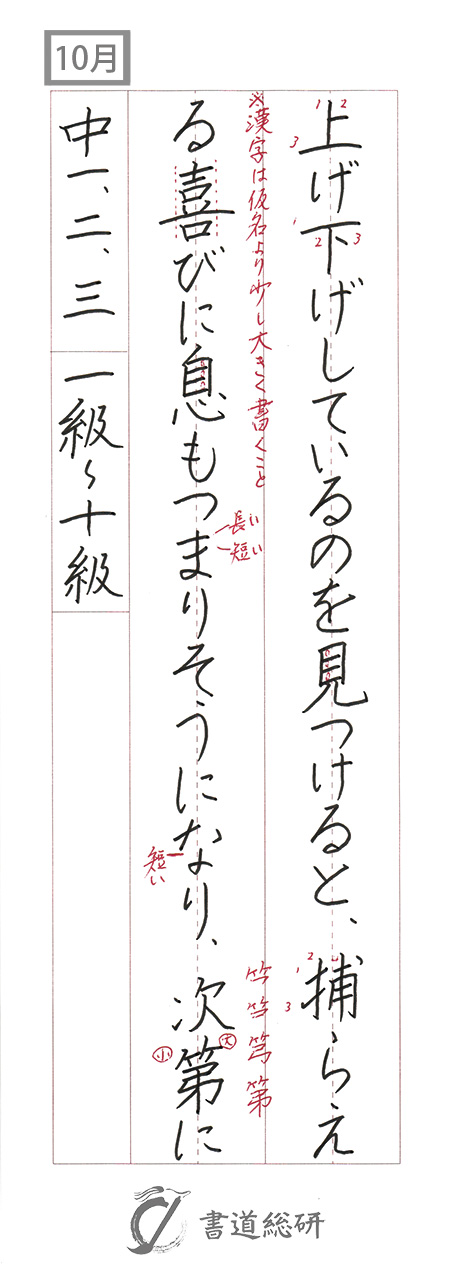 10月
上げ下げしているのを見つけると、捕らえ
1 2
3
1
2 3
2
1
3
※漢字は仮名より少し大きく書くこと
長い
短い
竹 笃 第
る喜びに息もつまりそうになり、次第に
短い
大
小
中一、二、三 一級〜十級
書道総研